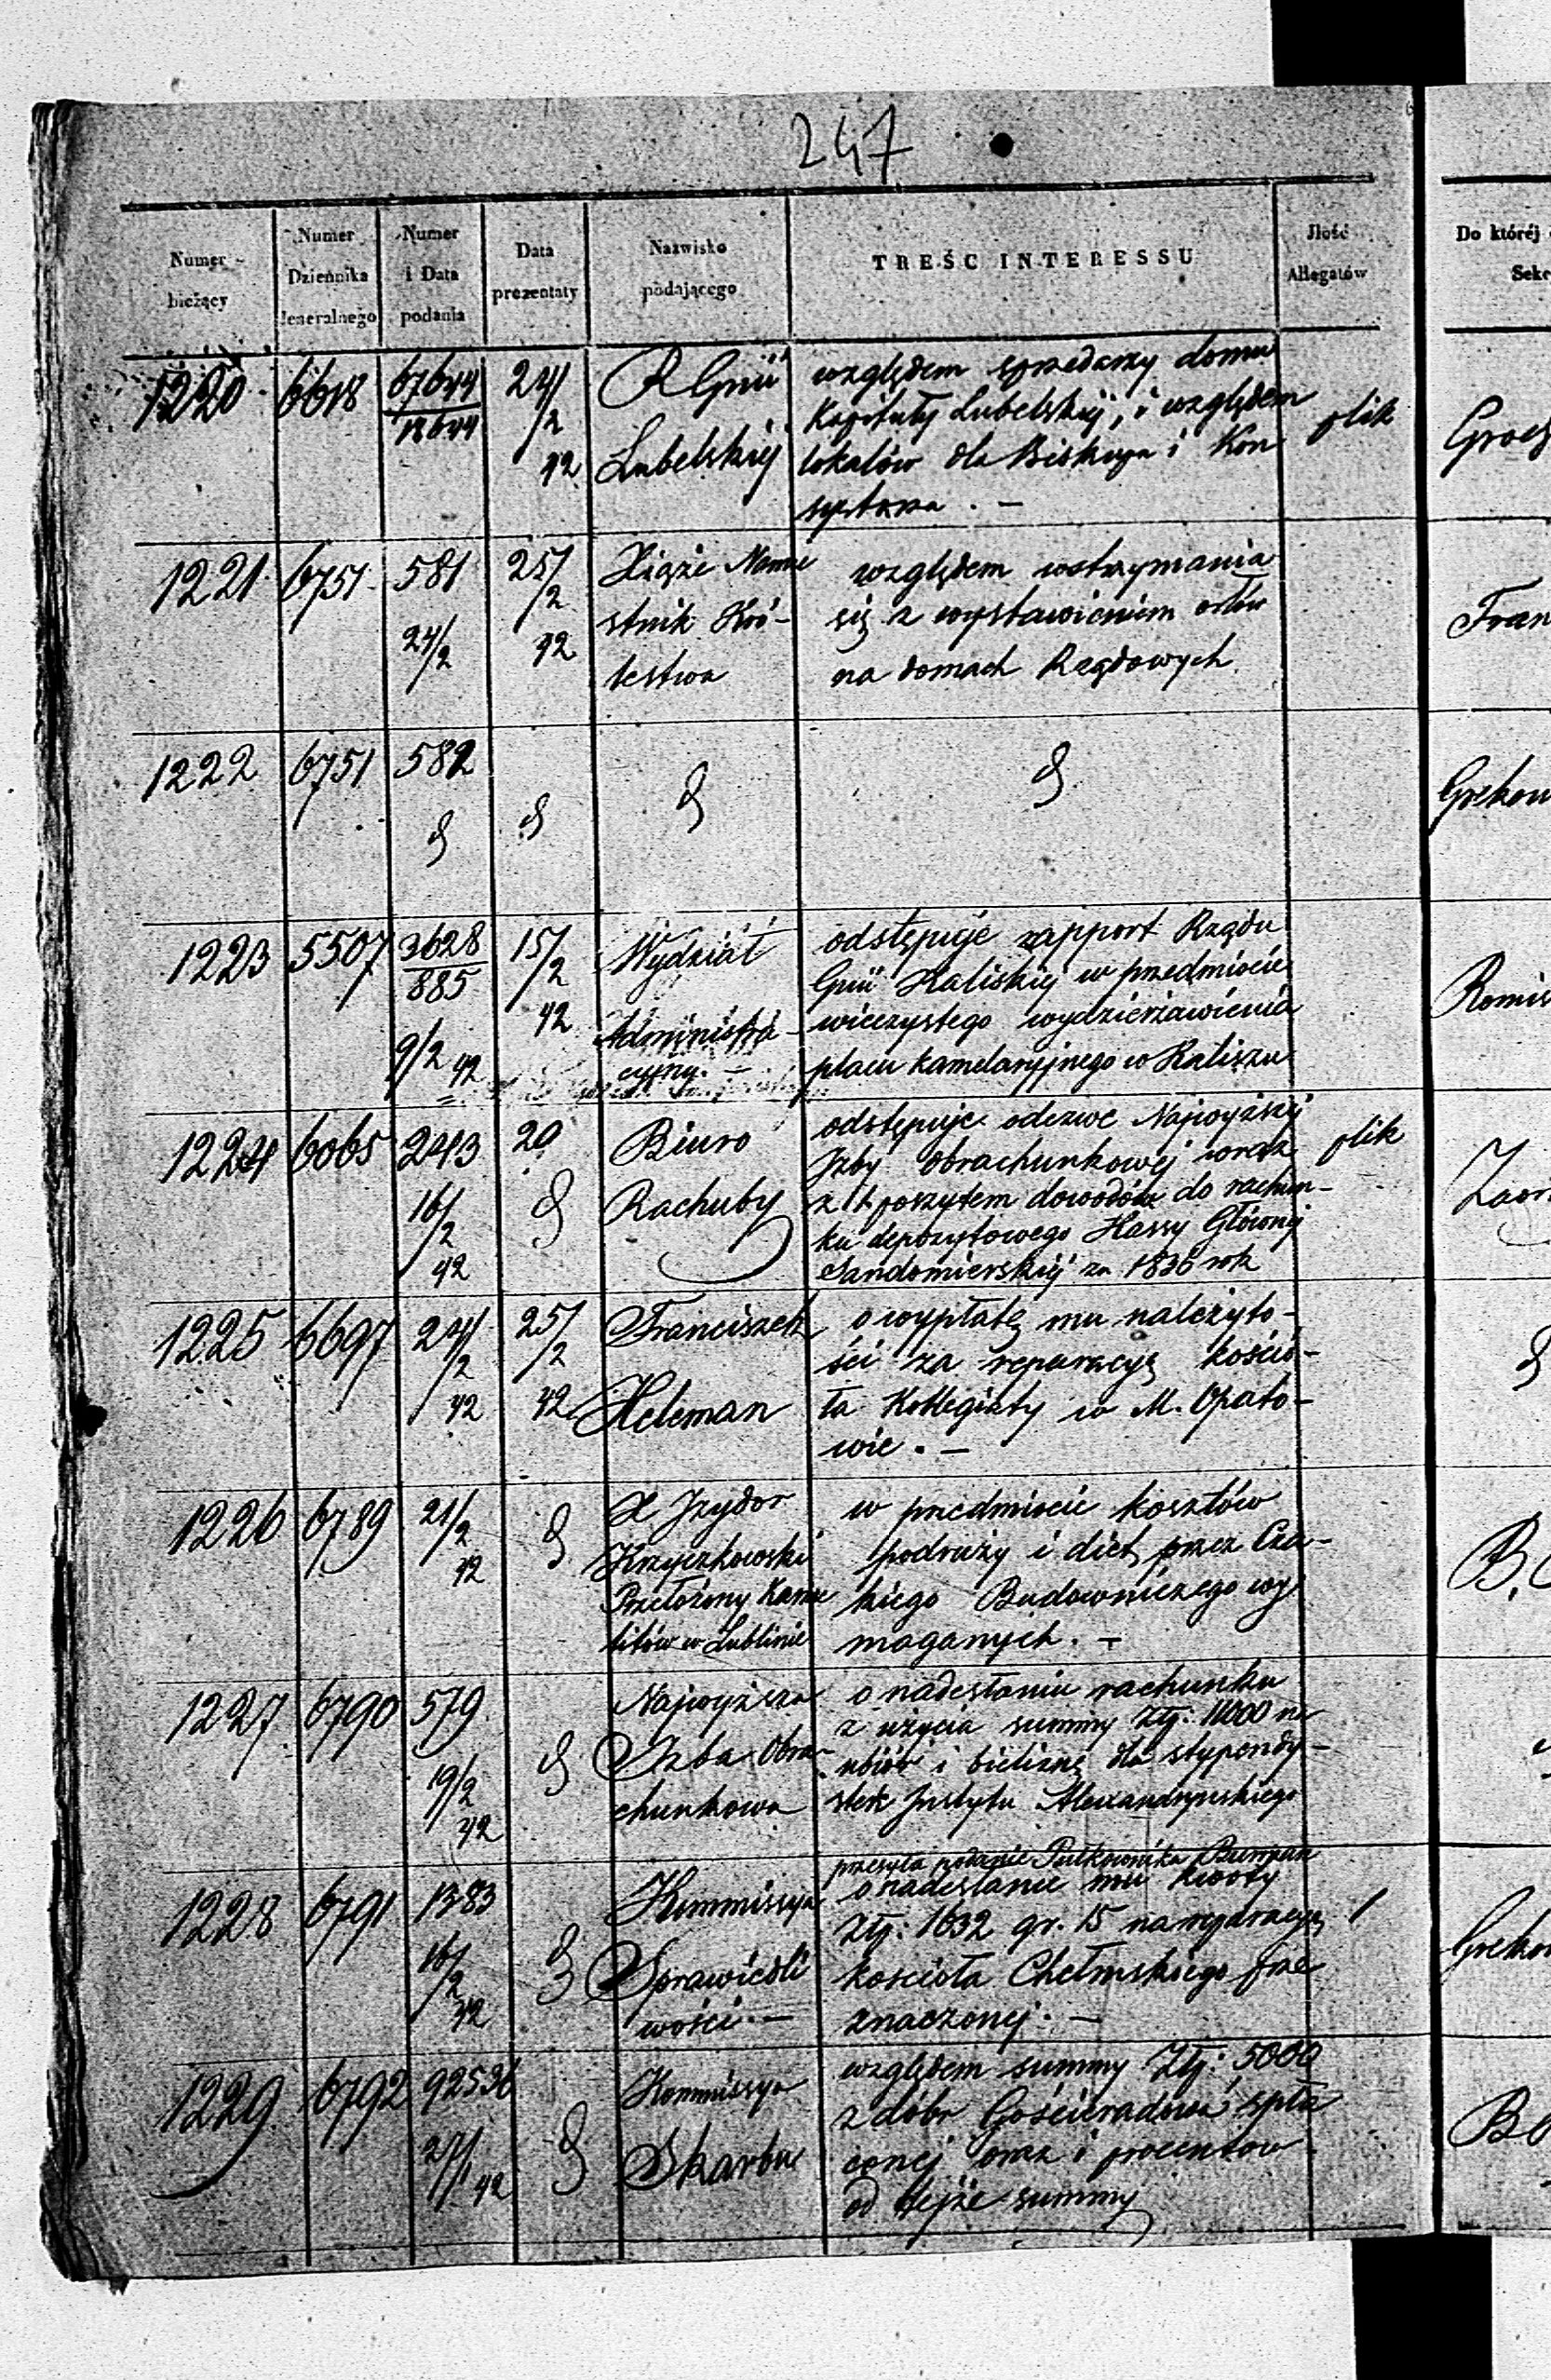 247
Numer bieżący | Numer Dziennika Jeneralnego | Numer i Data podania | Data prezentaty | Nazwisko podającego | TREŚC INTERESSU | Jlość Allegatów | Do któréj
1220 | 6618 | 67644/18644 | 24/2 42 | R Gnii Lubelskiej
względem sprzedarzy domu
Kapituły Lubelskiej, i względem
lokalów dla Biskupa i Kon
systorza . —
plik
1221 | 6751 | 581 24/2 | 25/2 42 | Xiąże Name
stnik Kró-
lestwa
względem wstrzymania
się z wystawieniem orłów
na domach Rządowych
Fran
1222 | 6751 | 582
Grekow
1223 | 5507 | 3628/885 9/2 42 | 15/2 42 | Wydział
Administra-
cyjny. —
odstępuje rapport Rządu
Gnii Kaliskiej w przedmiocie
wieczystego wydzierżawienia
placu kameralnego w Kaliszu
1224 | 6065 | 243 16/2 42 | 20 | Biuro
Rachuby
odstępuje odezwe Najwyższej
Jzby Obrachunkowej wraz
z 1 poszytem dowodów do rachun-
ku depozytowego Kassy Głównej
Sandomierskiej za 1836 rok
plik
1225 | 6697 | 24/2 42 | 25/2 42 | Franciszek
Heleman
o wypłatę mu należyto-
ści za reparacyę kościo-
ła Kollegiaty w M. Opato-
wie . —
1226 | 6789 | 21/2 42 | X Jzydor
Krzyczkowski
Przełożony Karme
litów w Lublinie
w przedmiocie kosztów
podróży i diet przez Cza-
kiego Budowniczego wy
maganych. —
1227 | 6790 | 579 19/2 42 | Najwyższa
Izba Obra-
chunkowa
o nadesłaniu rachunku
z użycia summy Złp: 11000 na
ubiór i bieliznę dla stypendy-
stek Jnstytu Alexandryńskiego
1228 | 6791 | 1383 16/2 42 | Kommissya
Sprawiedli
wości. —
przesyła podanie Pułkownika
o nadesłanie mu kwoty
Złp: 1632 gr. 15 na reparacyę
kościoła Chełmskiego prze
znaczonej. —
1
1229 | 6792 | 92536 27/1 42 | Kommissya
Skarbu
względem summy Złp: 5000
z dóbr Gościeradowa spła
conej oraz i procentow
od tejże summy